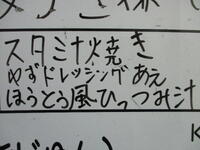 スタミナ焼き
ゆずドレッシングあえ
ほうとう風ひっつみ汁